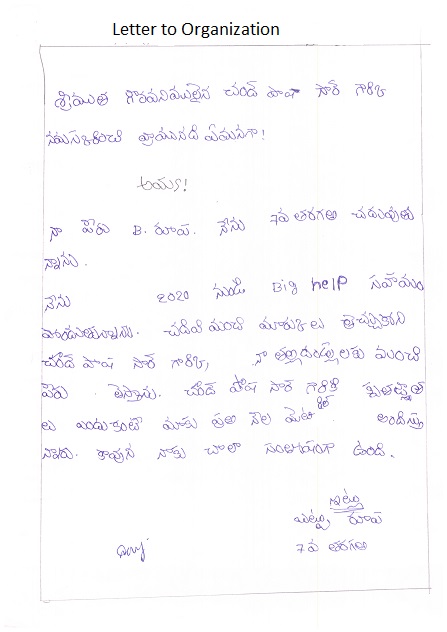 Letter to Organization
శ్రీయుత గౌరవనియులైన చంద్ పాషా సార్ గారికి
నమస్కరించి వ్రాయునది ఏమనగా!
అయ్యా!
నా పేరు B. రూప. నేను 7వ తరగతి చదువుతు
న్నాను.
నేను 2020 నుండి Big help సహాయం
పొందుతున్నాను. చదివి మంచి మార్కులు తెచ్చుకొని
చంద్ పాష సార్ గారికి, నా తల్లిదండ్రులకు మంచి
పేరు తెస్తాను. చంద్ పాష సార్ గారికి కృతజ్ఞత
లు ఎందుకంటే మాకు ప్రతి నెల అందిస్తు
న్నారు. కావున నాకు చాలా సంతోషంగా ఉంది.
ఇట్లు
రూప
7వ తరగతి